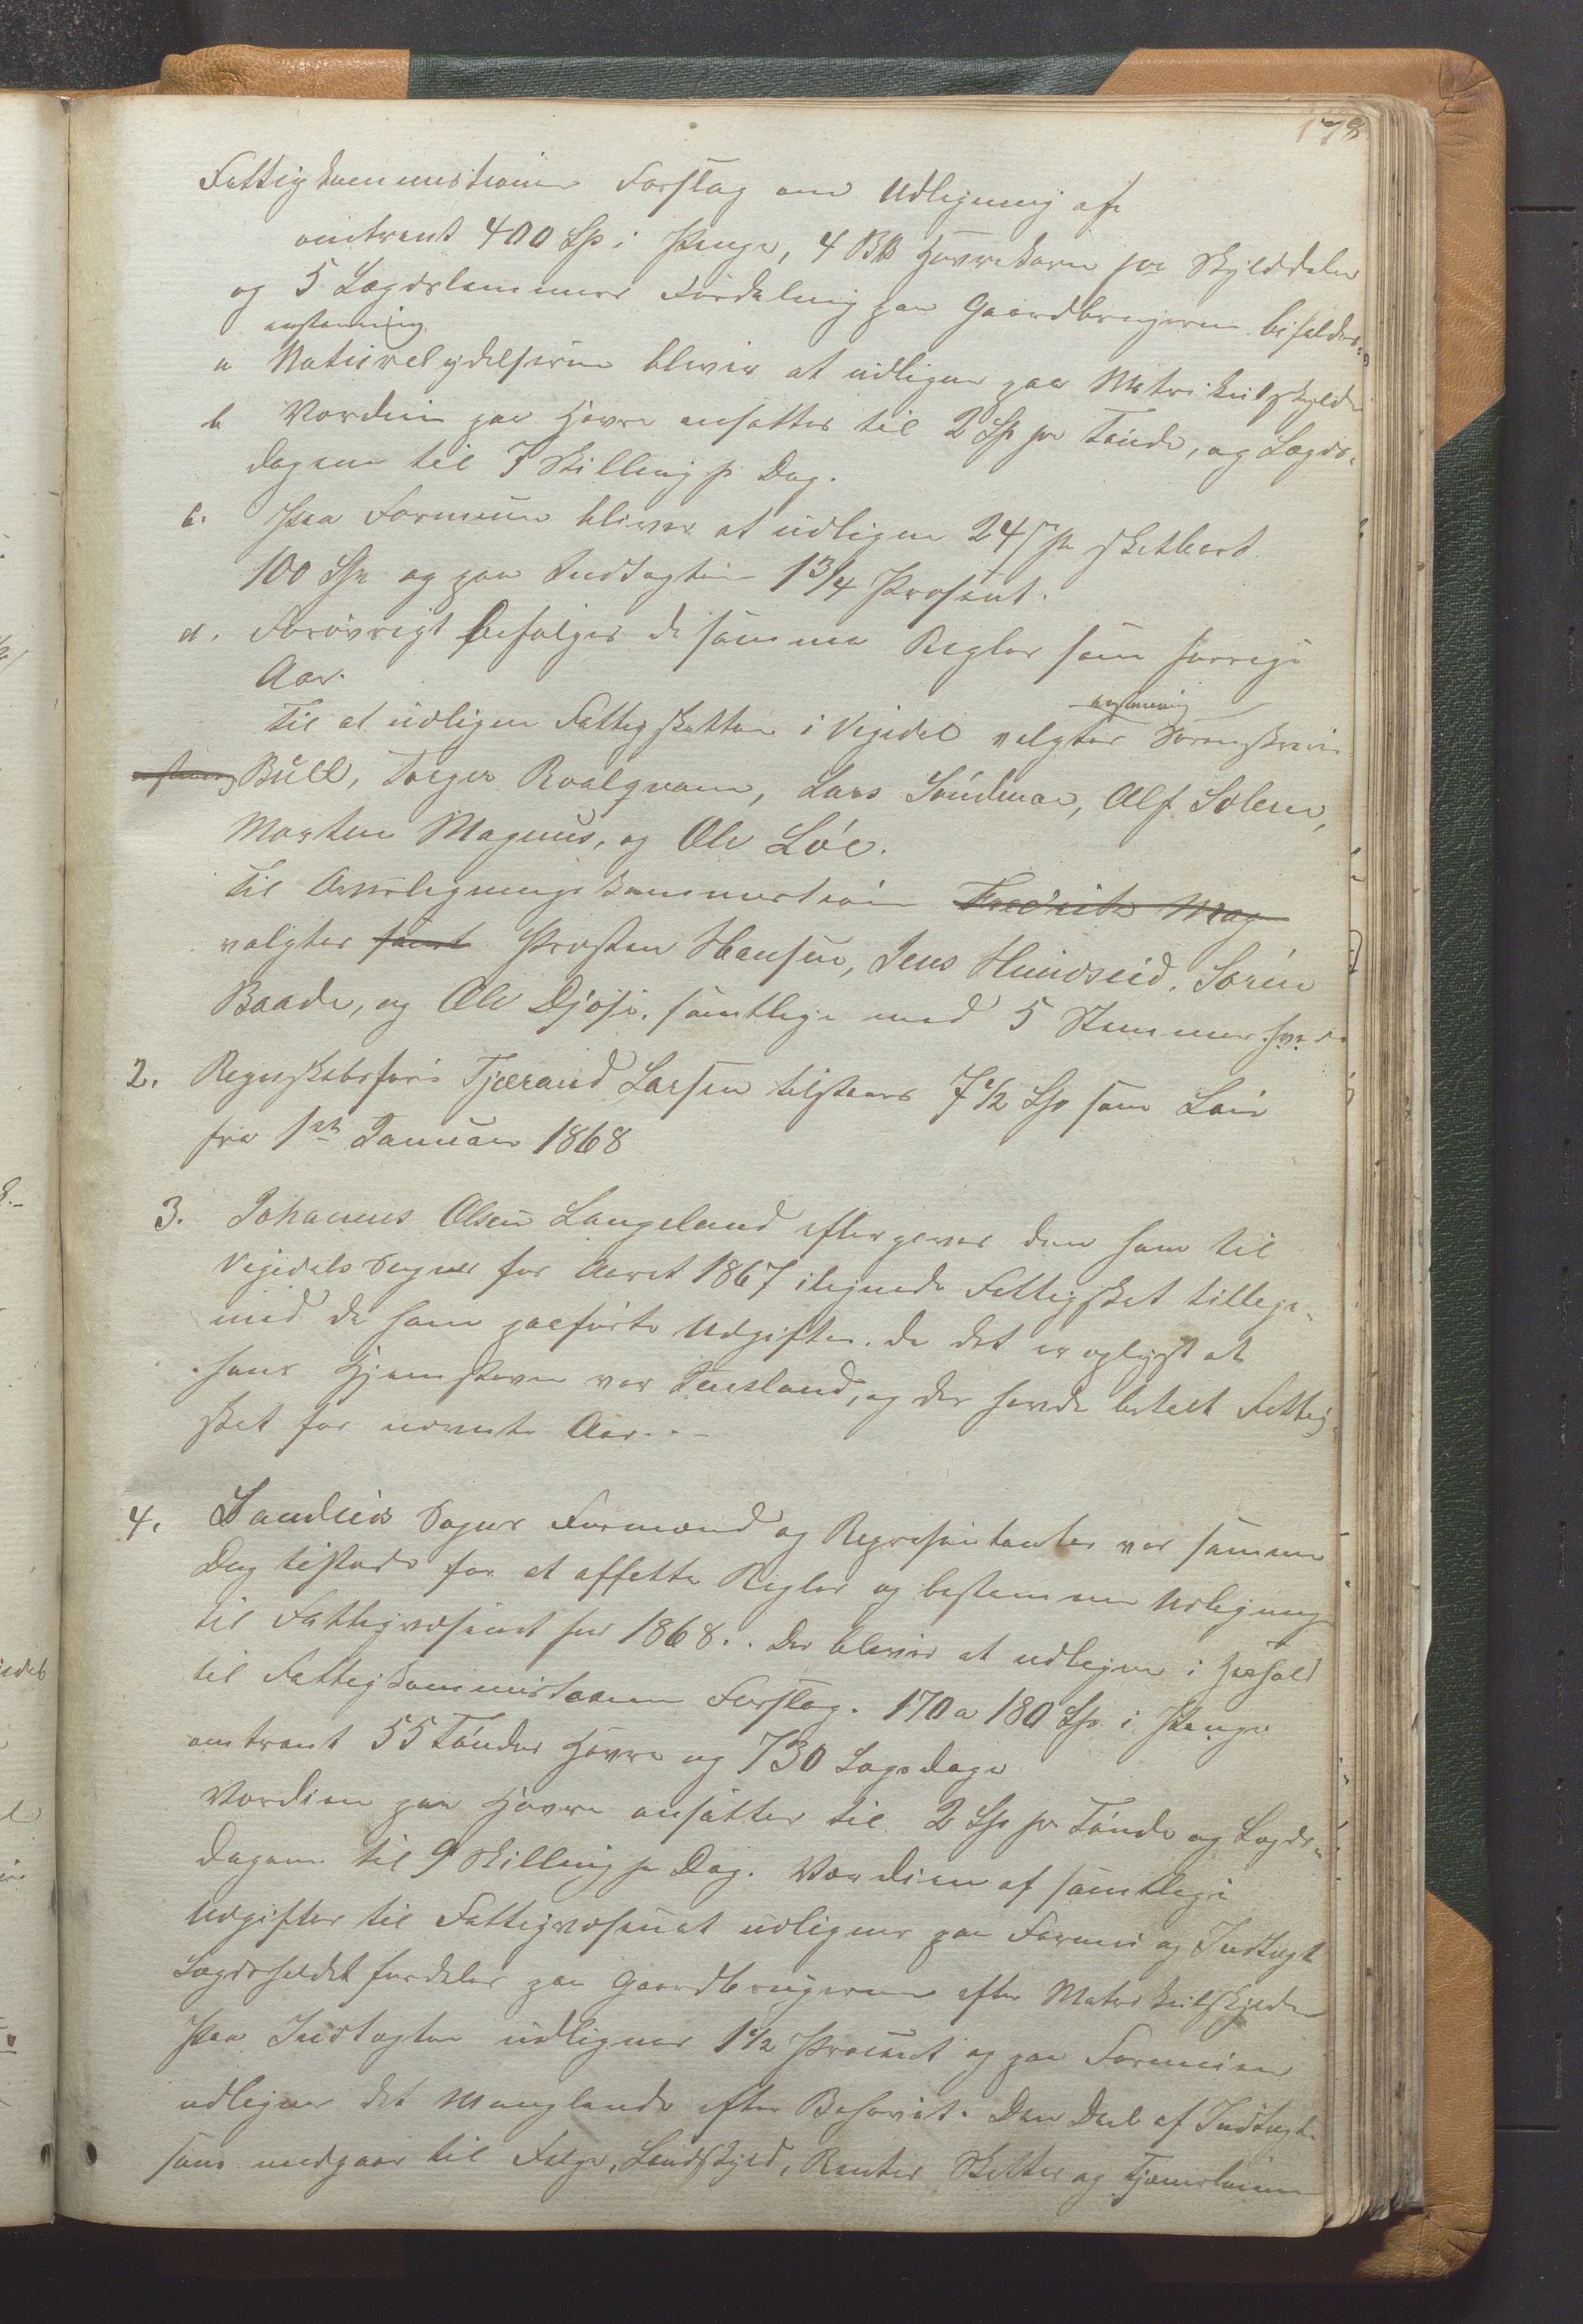 178
Fattigkommisionens Forslag om Udligning af
omtrent 400 Sp i Penge, 4 Havrekorn pr Skylddaler
og 5 Lægdslemmers Fordeling paa Gaardbrugerne bifaldes.
enstemmig
a Naturalydelserne bliver at udligne paa Matrikulskylden
b Værdien paa Havre ansættes til 2 Sp pr Tønde, og Lægds-
dagene til 7 Skilling pr Dag.
c. Paa Formuen bliver at udligne 24 pr skatbart
100 Sp og paa Indtægten 1 3/4 Prosent.
d. Forøvrigt befølges de samme Regler som forrige
Aar.
enstemmig
Til at udligne Fattigskatten i Vigedal valgtes Sorenskriver
Bull, Torger Roalqvam, Lars Søndenaa, Alf Solem,
Morten Magnus, og Ole Løe.
Til Overligningskommission Fredrik Mag
valgtes samt Provsten Hansen, Jens Hundseid, Soren
Baade, og Ole Djøse, samtlige med 5 Stemmer hver
2. Regnskabsfører Tjerand Larsen tilstaaes 7 1/2 Sp som Løn
fra 1st Januar 1868
3. Johannes Olsen Langeland eftergives den ham til
Vigedals Sogn for Aaret 1867 ilignede Fattigskat tillige-
med de ham paaførte Udgifter, da det er oplyst at
hans Hjemstavn var, og der havde betalt Fattig-
skat for nævnte Aar. –
4. Sandeids Sogns Formænd og Repræsentanter var samme
Dag tilstæde for at affatte Regler og bestemme Udligning
til Fattigvæsenet for 1868. Der bliver at udligne i Henhold
til Fattigkommissionens Forslag. 170 a 180 Sp i Penge
omtrent 55 Tønder Havre og 730 Lægsdage
Værdien paa Havre ansættes til 2 Sp pr Tønde og Lægds-
dagene til 9 Skilling pr Dag. Værdien af samtlige
Udgifter til Fattigvæsenet udlignes paa Formue og Indtægt
Lægdsholdet fordeles paa Gaardbrugerne efter Matrikulskylden
Paa Indtægten udlignes 1 1/2 Procent og paa Formuen
udlignes det Manglende efter Behovet. Den Deel af Indtægten
som medgaar til Følge, Landskyld, Renter Skatter og Tjenerløn